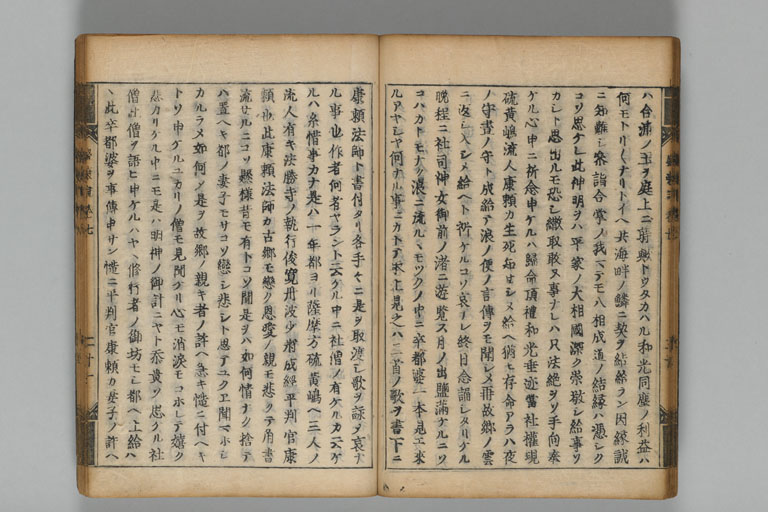 ハ合浦ノ玉ヲ庭上ニ蒔與トウタカハル和光同塵ノ利益ハ
何モトリ〱ナリトイヘ共海畔ノ鱗ニ契ヲ結給ラン因縁誠
ニ知難シ祭詣合掌ノ我ヘテモ八相成道ノ結縁ハ憑シク
コソ思ケレ此神明ヲハ平家ノ大相國深ク崇敬シ給事ソ
カシト思出ルモ恐シ繳取敢又事ナレハ只法施ヲソ手向奉
ケル心中ニ祈念申ケルハ歸命頂禮和光垂迹當社權現
硫黄嶋流人康頼カ生死知セシメ給ヘ猶モ存命アラハ夜
ノ守晝ノ守ト成給ヒ浪ノ便ノ言傳ヲモ聞シメ再故郷ノ雲
ニ返シ入シメ給ヘト祈ケルコソ哀ナレ終日念誦シタリケル
晩程ニ社司神女御前ノ渚ニ遊覽ス月ノ出鹽滿ケルニソ
コハカトモナク浪ニ流ルヽモツクノ中ニ卒都婆一本見エ來
ルアヤシヤ何ナル事ニカトテ取上見之ハ二首ノ歌ヲ書下ニ
康頼法師ト書付タリ各手々ニ是ヲ取渡シ歌ヲ詠ヲ哀ナ
ル事也作者何者ヤラント云ケル中ニ社僧ノ有ケルカ云ケ
ルハ糸惜事カナ是ハ一年都ヨリ薩摩方硫黄嶋ヘ三人ノ
流人有キ法勝寺ノ執行俊寛丹波少將成經平判官康
頼也此康頼法師カ古郷モ戀ク恩愛ノ親モ悲クテ角書
流セルニコソ無慙昔モ有トコソ聞是ヲハ如何情ナク捨テ
ハ置ヘキ都ノ妻子モサコソ戀シ悲シト思テユクヱ聞マホシ
カルラメ如何ノ是ヲ故郷ノ親キ者ノ許ヘ急キ慥ニ付ヘキ
トソ申ケルユカリノ僧モ見聞ケリ心モ消淚モコホレテ嬉ク
悲カリケル中ニモ是ハ明神ノ御計ニヤト忝貴ソ思ケル社
僧此僧ヲ語ヒ申ケルハヤヽ修行者ノ御坊モシ都ヘ上給ハ
ヽ此卒都婆ヲ事傳申サン慥ニ平判官康頼カ妻子ノ許ヘ